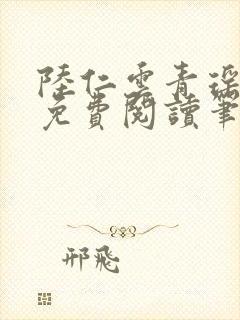 陸仁雲青瑤
免費閱讀筆
邢飛